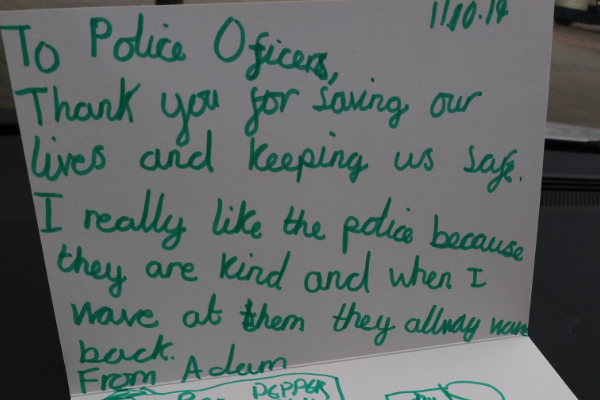 11.10.14
To Police Oficers,
Thank you for saving our
lives and keeping us safe.
I really like the police because
they are kind and when I
wave at them they allway wave
back.
From Adam
PEPPER